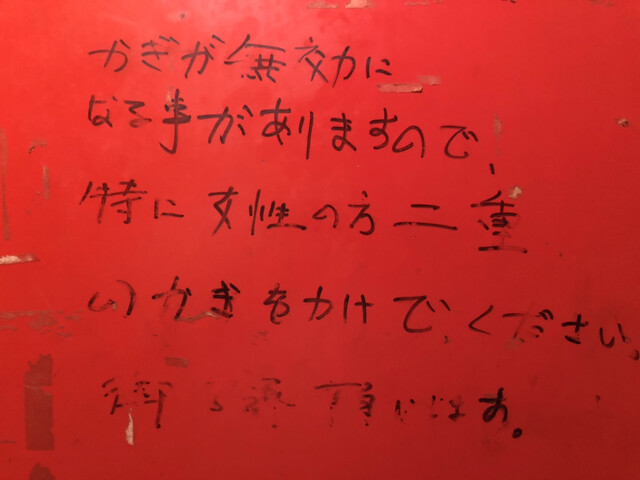 かぎが無効に
なる事がありますので、
特に女性の方二重
のかぎをかけてください。
頂います。